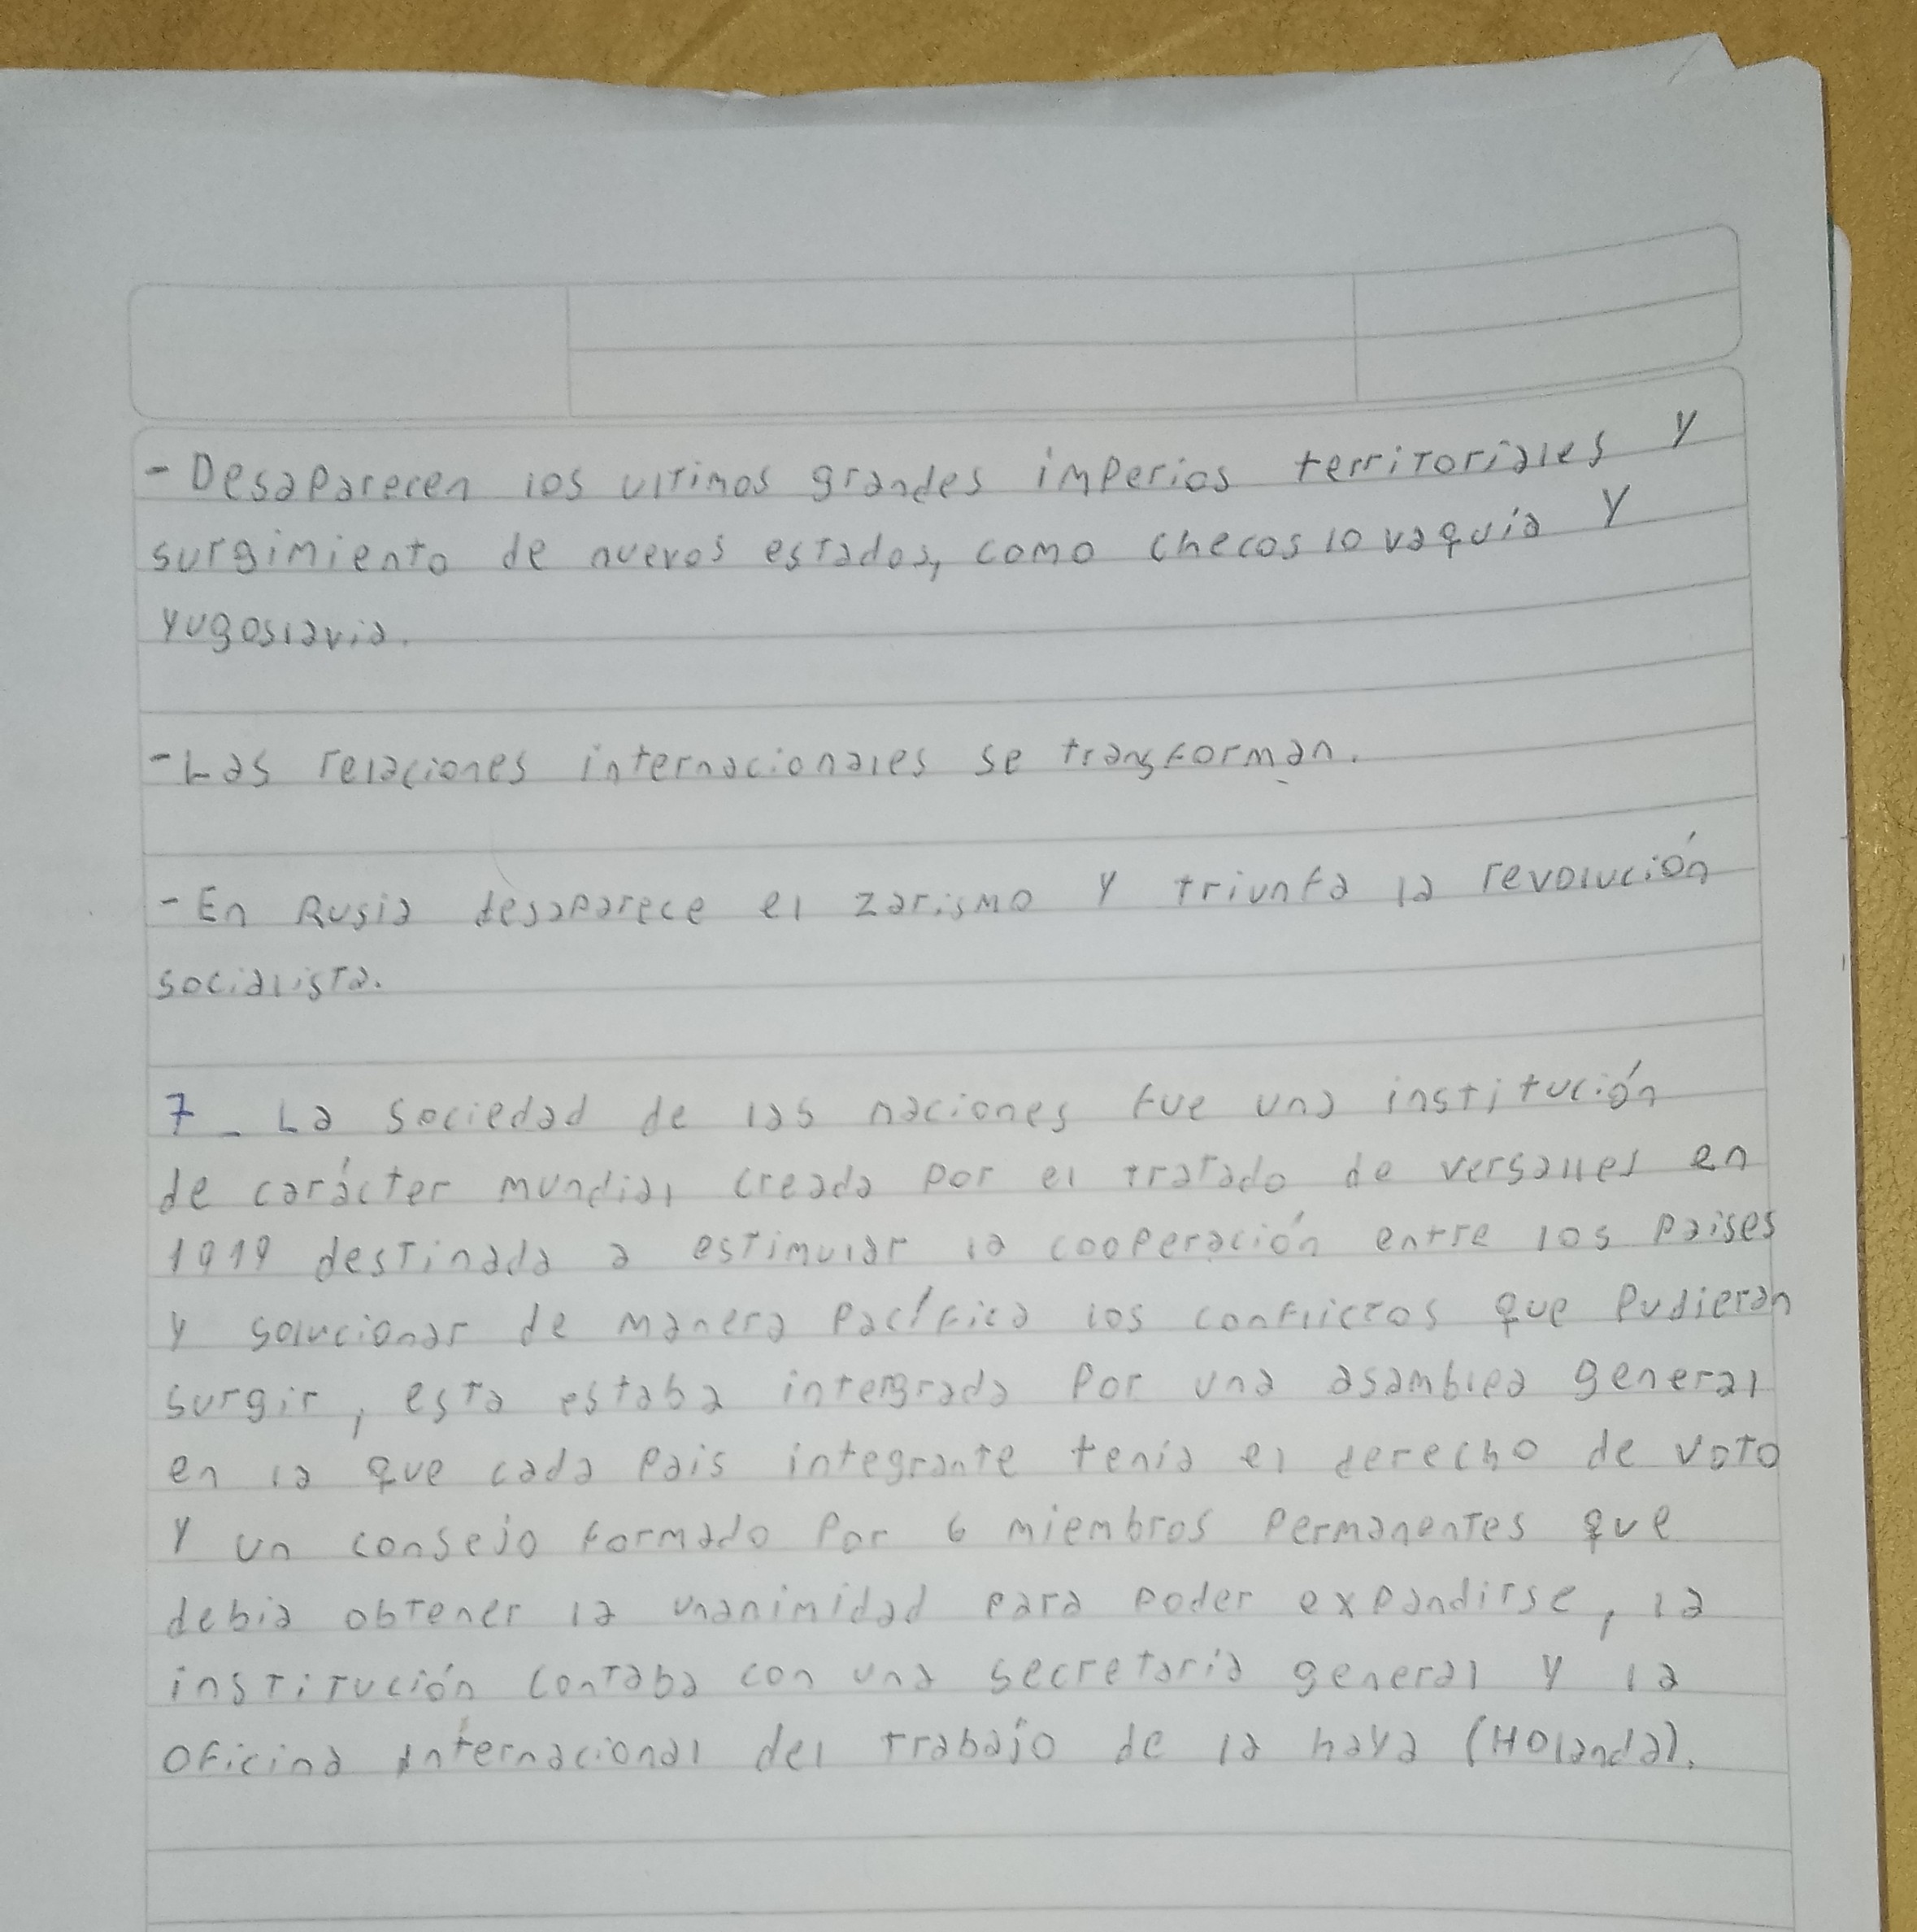 - Desaparecen los ultimos grandes imperios territoriales y
surgimiento de nuevos estados, como checoslovaquia y
yugoslavia.
- Las relaciones internacionales se transforman.
- En Rusia desaparece el zarismo y triunfa la revolución
socialista.
7_ La sociedad de las naciones fue una institución
de carácter mundial creada por el tratado de versalles en
1919 destinada a estimular la cooperación entre los paises
y solucionar de manera pacífica los conflictos que pudieran
surgir, esta estaba intergrada por una asamblea general
en la que cada pais integrante tenia el derecho de voto
y un consejo formado por 6 miembros permanentes que
debia obtener la unanimidad para poder expandirse, la
institución contaba con una secretaria general y la
oficina internacional del trabajo de la haya (Holanda).